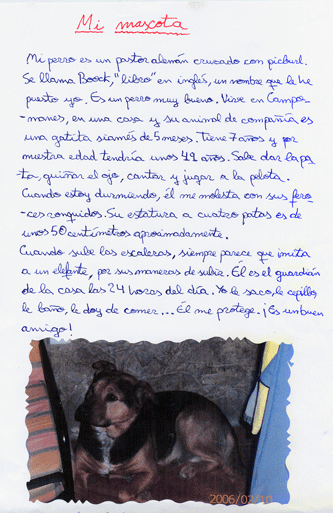 Mi mascota
Mi perro es un pastor alemán cruzado con picburl.
Se llama Boock, "libro" en inglés, un nombre que le he
puesto yo. Es un perro muy bueno. Vive en Campo-
-manes, en una casa y su animal de compañía es
una gatita siamés de 5 meses. Tiene 7 años y por
nuestra edad tendría unos 42 años. Sabe dar la pa-
ta, guiñar el ojo, cantar y jugar a la pelota.
Cuando estoy durmiendo, él me molesta con sus fero-
-ces ronquidos. Su estatura a cuatro patas es de
unos 50 centímetros aproximadamente.
Cuando sube las escaleras, siempre parece que imita
a un elefante, por sus maneras de subir. Él es el guardián
de la casa las 24 horas del día. Yo le saco, le cepillo,
le baño, le doy de comer... Él me protege. ¡Es un buen
amigo!
2006/02/10